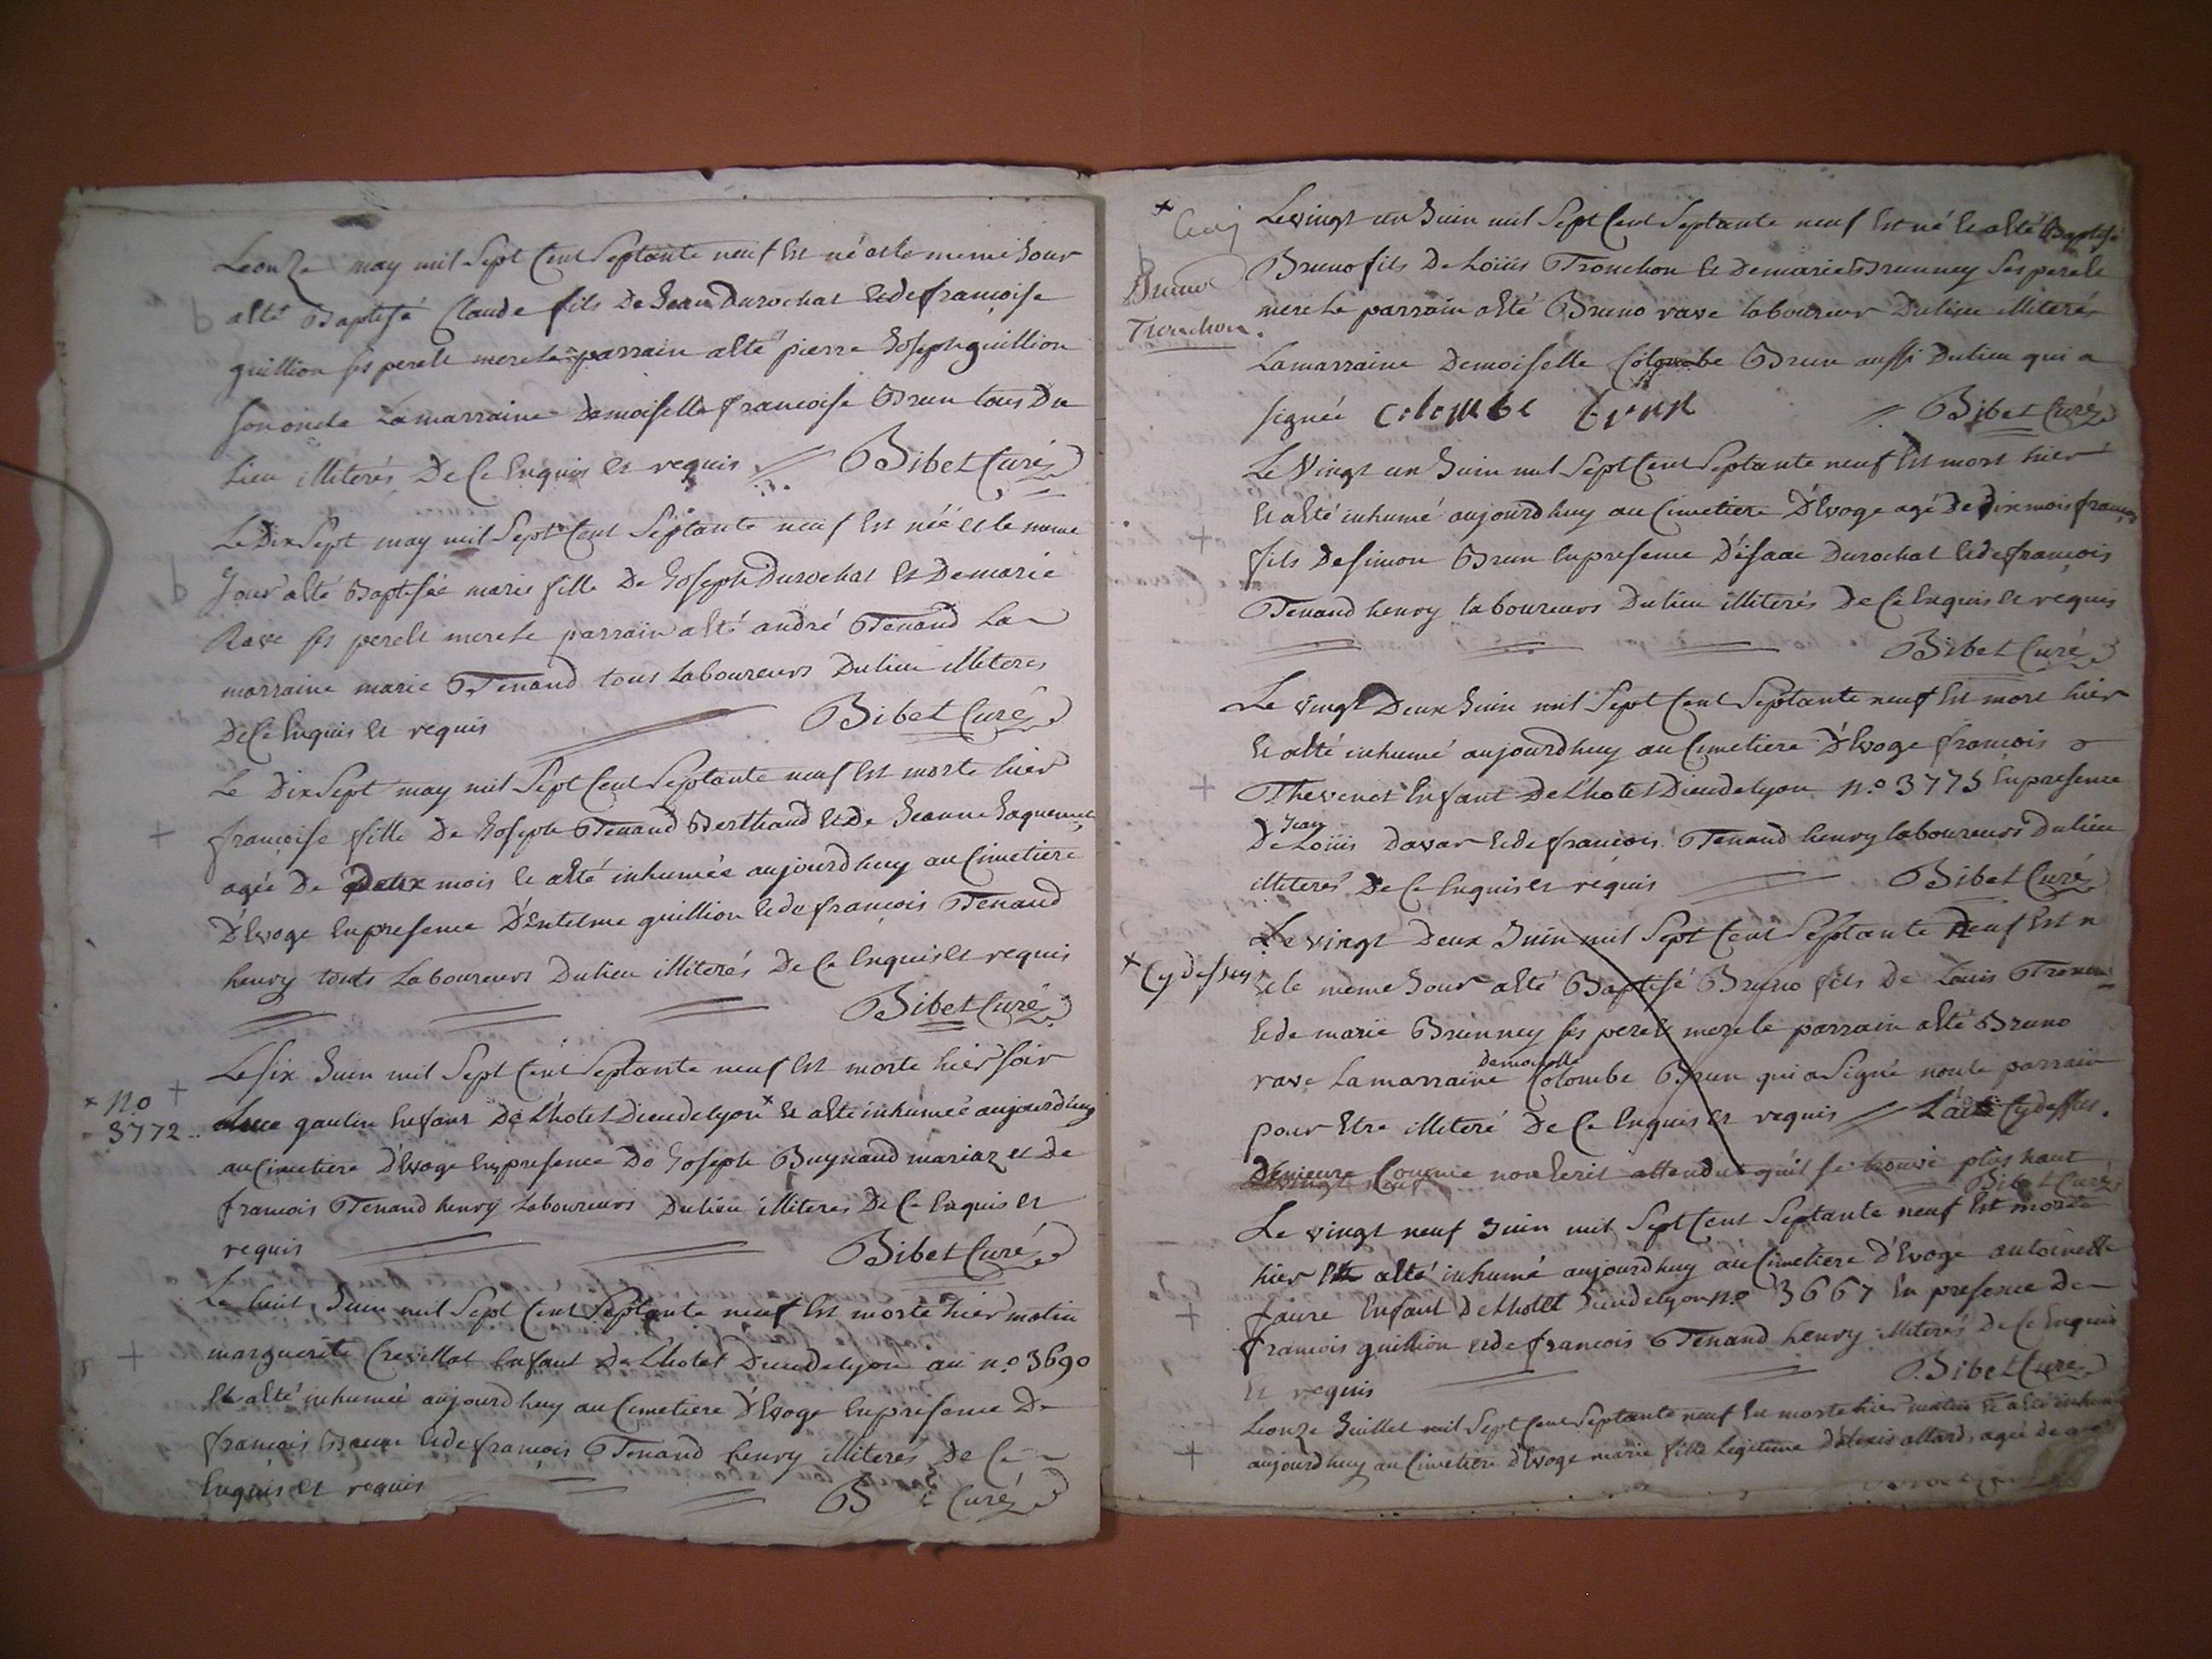 Le onze may mil Sept Cent Septante neuf Est né et le meme Jour
aEté Baptisé Claude fils De Jean Durochat Et de françoise
guillion ses pere Et mere Le parrain aEté pierre Joseph guillion
son oncle La marraine Demoiselle francoise Brun tous Du
Lieu illiterés De Ce Enquis Et requis Bibet Curé
Le Dix Sept may mil Sept Cent Septante neuf Est née et le meme
Jour aEté Baptisée marie fille De Joseph Durochat Et De marie
Rave ses pere Et mere Le parrain aEté andré Tenand La
marraine marie Tenand tous Laboureurs Du lieu illiteres
De Ce Enquis Et requis Bibet Curé
Le Dix Sept may mil Sept Cent Septante neuf Est morte hier
françoise fille De Joseph Tenand Berthand Et De Jeanne
agée De Deux mois Et aEté inhumée aujourdhuy au Cimetiere
D'Evoge En presence D'Entelme guillion Et de francois Tenand
henry touts Laboureurs Du lieu illiterés De Ce Enquis Et requis
Bibet Curé
Le six Juin mil Sept Cent Septante neuf Est morte hier soir
× no + 3772 gaulin Enfant De L'hotel Dieu de Lyon × Et aEté inhumée aujourdhuy
au Cimetiere D'Evoge En presence De Joseph Buynand mariaz et de
francois Tenand henry Laboureurs Du lieu illiteres De Ce Enquis Et
requis Bibet Curé
Le huit Juin mil Sept Cent Septante neuf Est morte hier matin
marguerite Crevillat Enfant De L'hotel Dieu de Lyon au no 3690
Et aEté inhumée aujourdhuy au Cimetiere D'Evoge En presence De
francois Brun Et de francois Tenand henry illiterés De Ce
Enquis Et requis B Curé
× Bruno Tronchon. Le vingt un Juin mil Sept Cent Septante neuf Est né Et aEté Baptisé
Bruno fils De Loüis Tronchon Et De marie Brunney Ses pere Et
mere Le parrain aEté Bruno rave laboureur Du lieu illiteré
La marraine Demoiselle Colombe Brun aussi Du lieu qui a
signée colombe brun Bibet Curé
Le Vingt un Juin mil Sept Cent Septante neuf Est mort hier
Et aEté inhumé aujourdhuy au Cimetiere D'Evoge agé De Dix mois françois
fils De simon Brun En presence D'isaac Durochat Et de francois
Tenand henry laboureurs Du lieu illiterés De Ce Enquis Et requis
Bibet Curé
Le Vingt Deux Juin mil Sept Cent Septante neuf Est mort hier
Et aEté inhumé aujourdhuy au Cimetiere D'Evoge francois
Thevenet Enfant De L'hotel Dieu de lyon no 3775 En presence
Jean
De Loüis Davar Et de francois Tenand henry laboureurs Du lieu
illiterés De Ce Enquis Et requis Bibet Curé
Le vingt Deux Juin mil Sept Cent Septante Neuf Est n
× Cy dessus Et le meme Jour aEté Baptisé Bruno fils De Louis
Et de marie Brunney ses pere Et mere le parrain aEté Bruno
Demoiselle
rave La marraine Colombe Brun qui a Signé non le parrain
pour Etre illiteré De Ce Enquis Et requis L'acte Cy dessus.
Demeure Comme non Ecrit attendut qu'il se trouve plus haut
Bibet Curé
Le vingt neuf Juin mil Sept Cent Septante neuf Est morte
hier Et aEté inhumé aujourdhuy au Cimetiere D'Evoge antoinette
faure Enfant De L'hotel Dieu de lyon no 3667 En presence De
francois guillion Et de francois Tenand henry illiterés De Ce Enquis
Et requis Bibet Curé
Le onze Juillet mil Sept Cent Septante neuf Est morte hier matin Et aEté inhumé
aujourdhuy au Cimetiere D'Evoge marie fille Legitime D'alexis allard agée de